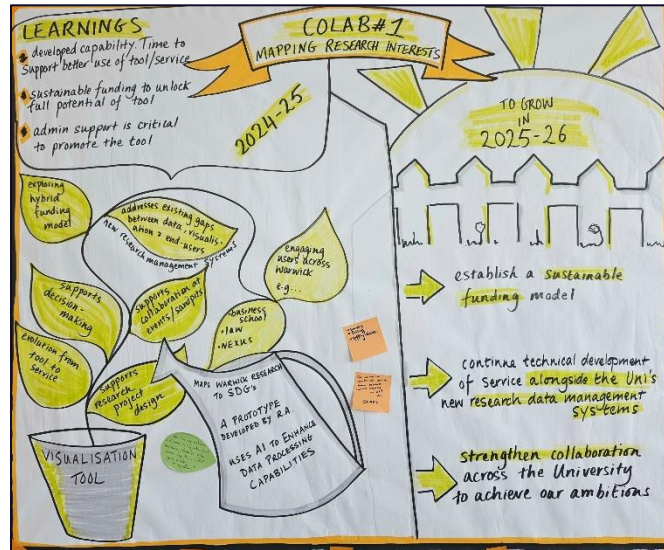 COLAB#1
MAPPING RESEARCH INTERESTS
LEARNINGS
developed capability. Time to
support better use of tool/service
sustainable funding to unlock
full potential of tool
admin support is critical
to promote the tool
2024-25
exploring
hybrid
funding
model
addresses existing gaps
between data, visualis-
ation & end-users
new research management systems
engaging
users across
Warwick
e.g...
supports
decision-
making
supports
collaboration at
events/sandpits
• business
school
• law
• NEXUS
evolution from
tool to
service
supports
research
project
design
MAPS WARWICK RESEARCH
TO SDG's
A PROTOTYPE
DEVELOPED BY R.A.
USES AI TO ENHANCE
DATA PROCESSING
CAPABILITIES
VISUALISATION
TOOL
TO GROW
IN
2025-26
establish a sustainable
funding model
continue technical development
of service alongside the Uni's
new research data management
systems
strengthen collaboration
across the University
to achieve our ambitions